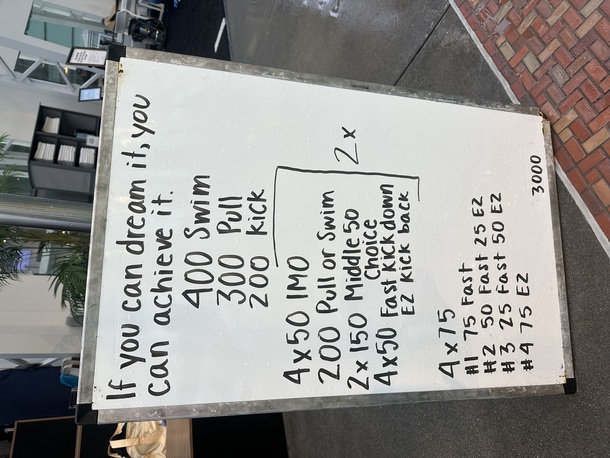 If you can dream it, you
can achieve it.
400 Swim
300 Pull
200 kick
4x50 IMO
200 Pull or Swim
2x150 Middle 50
Choice
4x50 Fast Kick down
EZ kick back
2x
4x75
#1 75 Fast
#2 50 Fast 25 EZ
#3 25 Fast 50 EZ
#4 75 EZ
3000